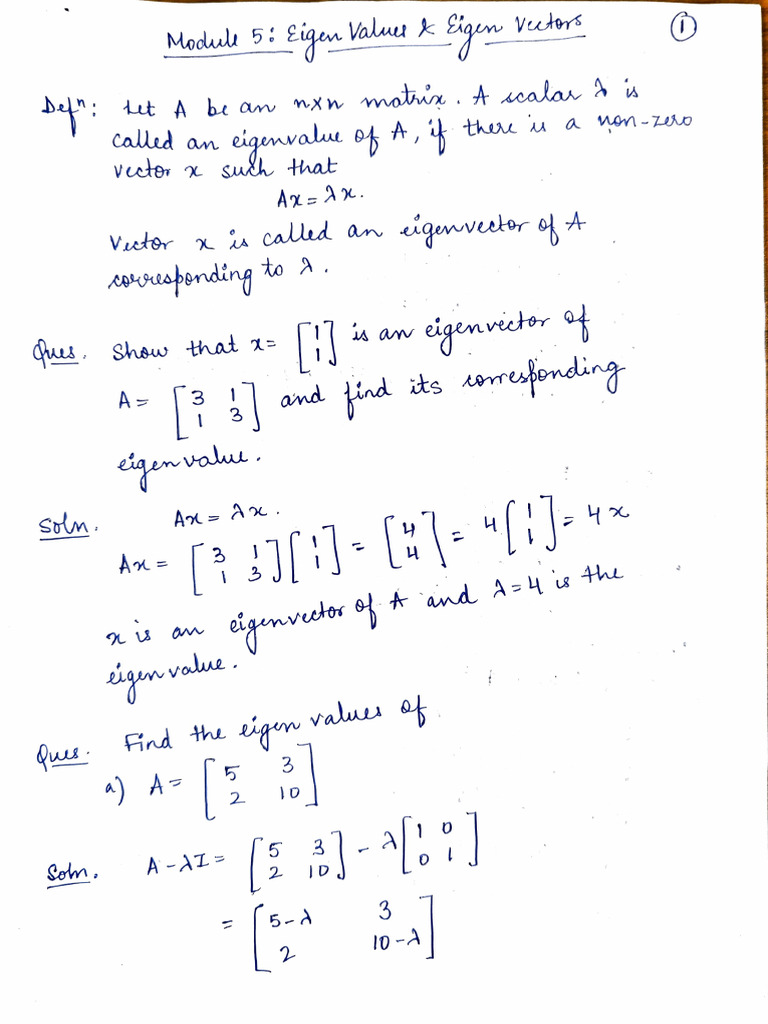 Module 5: Eigen Values & Eigen Vectors ①
Defⁿ: Let A be an n×n matrix. A scalar λ is
called an eigenvalue of A, if there is a non-zero
vector x such that
Ax = λx.
Vector x is called an eigenvector of A
corresponding to λ.
Ques. Show that x = [1; 1] is an eigenvector of
A = [3 1; 1 3] and find its corresponding
eigenvalue.
Soln. Ax = λx.
Ax = [3 1; 1 3] [1; 1] = [4; 4] = 4 [1; 1] = 4x
x is an eigenvector of A and λ=4 is the
eigenvalue.
Ques. Find the eigen values of
a) A = [5 3; 2 10]
Soln. A - λI = [5 3; 2 10] - λ [1 0; 0 1]
= [5-λ 3; 2 10-λ]